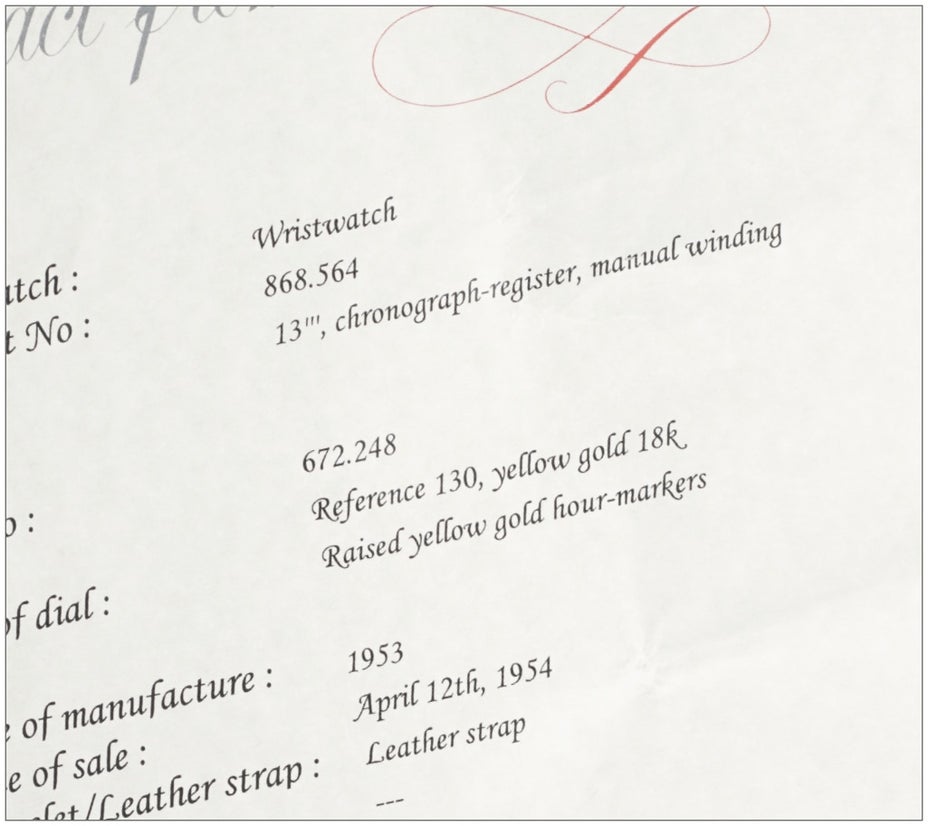 Wristwatch
atch : 868.564
t No : 13''', chronograph-register, manual winding
672.248
o : Reference 130, yellow gold 18k
Raised yellow gold hour-markers
of dial :
1953
e of manufacture : April 12th, 1954
e of sale : Leather strap
let/Leather strap : ---